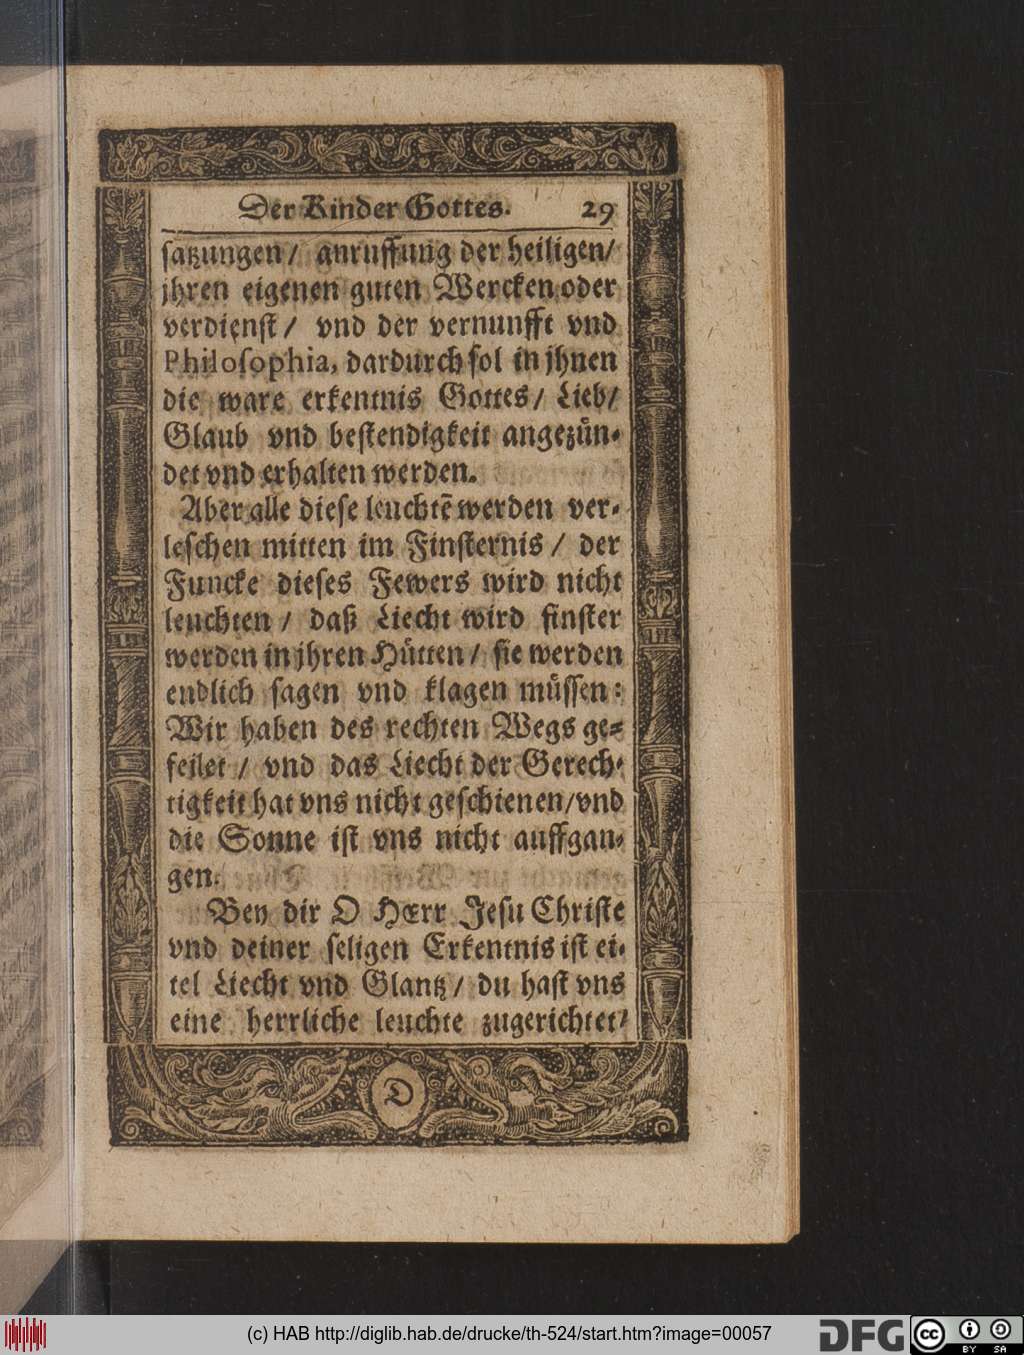 Der Kinder Gottes. 29
satzungen / anruffung der heiligen/
jhren eigenen guten Wercken oder
verdienst / vnd der vernunfft vnd
Philosophia, dardurch sol in jhnen
die ware erkentnis Gottes / Lieb/
Glaub vnd bestendigkeit angezün-
det vnd erhalten werden.
Aber alle diese leuchtē werden ver-
leschen mitten im Finsternis / der
Funcke dieses Fewers wird nicht
leuchten / daß Liecht wird finster
werden in jhren Hütten / sie werden
endlich sagen vnd klagen müssen:
Wir haben des rechten Wegs ge-
feilet / vnd das Liecht der Gerech-
tigkeit hat vns nicht geschienen/vnd
die Sonne ist vns nicht auffgan-
gen.
Bey dir O Herr Jesu Christe
vnd deiner seligen Erkentnis ist ei-
tel Liecht vnd Glantz / du hast vns
eine herrliche leuchte zugerichtet/
D
(c) HAB http://diglib.hab.de/drucke/th-524/start.htm?image=00057
DFG
cc
BY SA